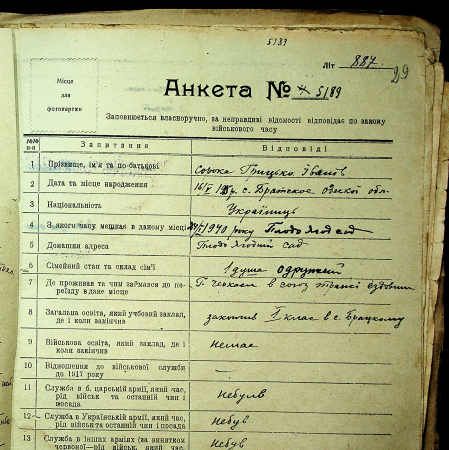 5189
Літ 887.
29
Місце
для
фотокартки
Анкета № 5189
Заповнюється власноручно, за неправдиві відомості відповідає по закону
військового часу
№№ п-п
Запитання
Відповіді
1 Прізвище, ім'я та по-батькові
Грицько Іванов
2 Дата та місце народження
с. Братское Одеської обл.
3 Національність
Українець
4 З якого часу мешкає в даному місці
1940 року Плодоягод сад
5 Домашня адреса
Плодо ягодний сад
6 Сімейний стан та склад сім'ї
1 душа одружений
7 Де проживав та чим займався до пе-
реїзду в дане місце
Г. Черкаси в союз трансі ездовим
8 Загальна освіта, який учбовий заклад,
де і коли закінчив
закончив I клас в с. Брацкому
9 Військова освіта, який заклад, де і
коли закінчив
немає
10 Відношення до військової служби
до 1917 року
—
11 Служба в б. царській армії, який час,
рід військ та останній чин і
посада
не був
12 Служба в Українській армії, який час,
рід військ та останній чин і посада
не був
13 Служба в інших арміях (за винятком
червоної—рід військ, який час,
не був